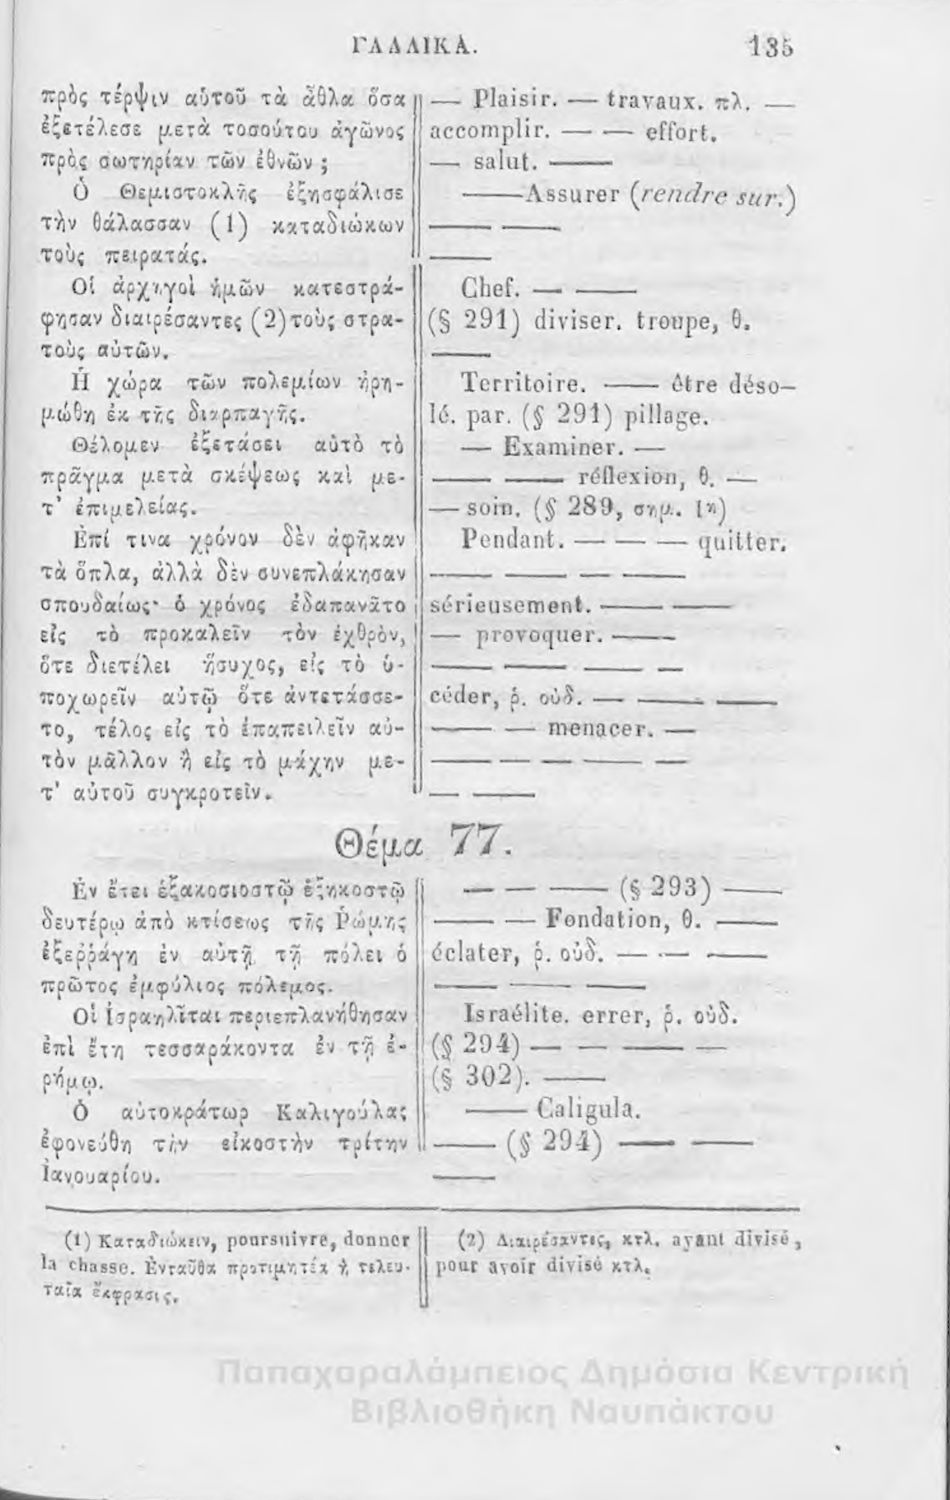 ΓΑΛΛΙΚΑ.
135
πρὸς τέρψιν αὑτοῦ τὰ ἆθλα ὅσα
ἐξετέλεσε μετὰ τοσούτου ἀγῶνος
πρὸς σωτηρίαν τῶν ἐθνῶν ;
Ὁ Θεμιστοκλῆς ἐξησφάλισε
τὴν θάλασσαν (1) καταδιώκων
τοὺς πειρατάς.
Οἱ ἀρχηγοὶ ἡμῶν κατεστρά-
φησαν διαιρέσαντες (2) τοὺς στρα-
τοὺς αὑτῶν.
Ἡ χώρα τῶν πολεμίων ἠρη-
μώθη ἐκ τῆς διαρπαγῆς.
Θέλομεν ἐξετάσει αὐτὸ τὸ
πρᾶγμα μετὰ σκέψεως καὶ με-
τ' ἐπιμελείας.
Ἐπί τινα χρόνον δὲν ἀφῆκαν
τὰ ὅπλα, ἀλλὰ δὲν συνεπλάκησαν
σπουδαίως· ὁ χρόνος ἐδαπανᾶτο
εἰς τὸ προκαλεῖν τὸν ἐχθρὸν,
ὅτε διετέλει ἥσυχος, εἰς τὸ ὑ-
ποχωρεῖν αὐτῷ ὅτε ἀντετάσσε-
το, τέλος εἰς τὸ ἐπαπειλεῖν αὐ-
τὸν μᾶλλον ἢ εἰς τὸ μάχην με-
τ' αὐτοῦ συγκροτεῖν.
— Plaisir. — travaux. πλ. —
accomplir. — — effort.
— salut. —
— Assurer (rendre sur.)
— —
—
Chef. — —
(§ 291) diviser. troupe, θ.
—
Territoire. — être déso-
lé. par. (§ 291) pillage.
— Examiner. —
— — réflexion, θ. —
— soin. (§ 289, σημ. 1η)
Pendant. — — — quitter.
— — — —
sérieusement. — —
— provoquer. —
— — — —
céder, ῥ. οὐδ. — — —
— — menacer. —
— — — — —
— —
Θέμα 77.
Ἐν ἔτει ἑξακοσιοστῷ ἑξηκοστῷ
δευτέρῳ ἀπὸ κτίσεως τῆς Ῥώμης
ἐξερράγη ἐν αὐτῇ τῇ πόλει ὁ
πρῶτος ἐμφύλιος πόλεμος.
Οἱ Ἰσραηλῖται περιεπλανήθησαν
ἐπὶ ἔτη τεσσαράκοντα ἐν τῇ ἐ-
ρήμῳ.
Ὁ αὐτοκράτωρ Καλιγούλας
ἐφονεύθη τὴν εἰκοστὴν τρίτην
Ἰανουαρίου.
— — — (§ 293) —
— — Fondation, θ. —
éclater, ῥ. οὐδ. — — —
— — —
Israélite. errer, ῥ. οὐδ.
(§ 294) — — — —
(§ 302). —
— Caligula.
— (§ 294) — —
—
(1) Καταδιώκειν, poursuivre, donner
la chasse. Ἐνταῦθα προτιμητέα ἡ τελευ-
ταία ἔκφρασις.
(2) Διαιρέσαντες, κτλ. ayant divisé,
pour avoir divisé κτλ.
Παπαχαραλάμπειος Δημόσια Κεντρική
Βιβλιοθήκη Ναυπάκτου